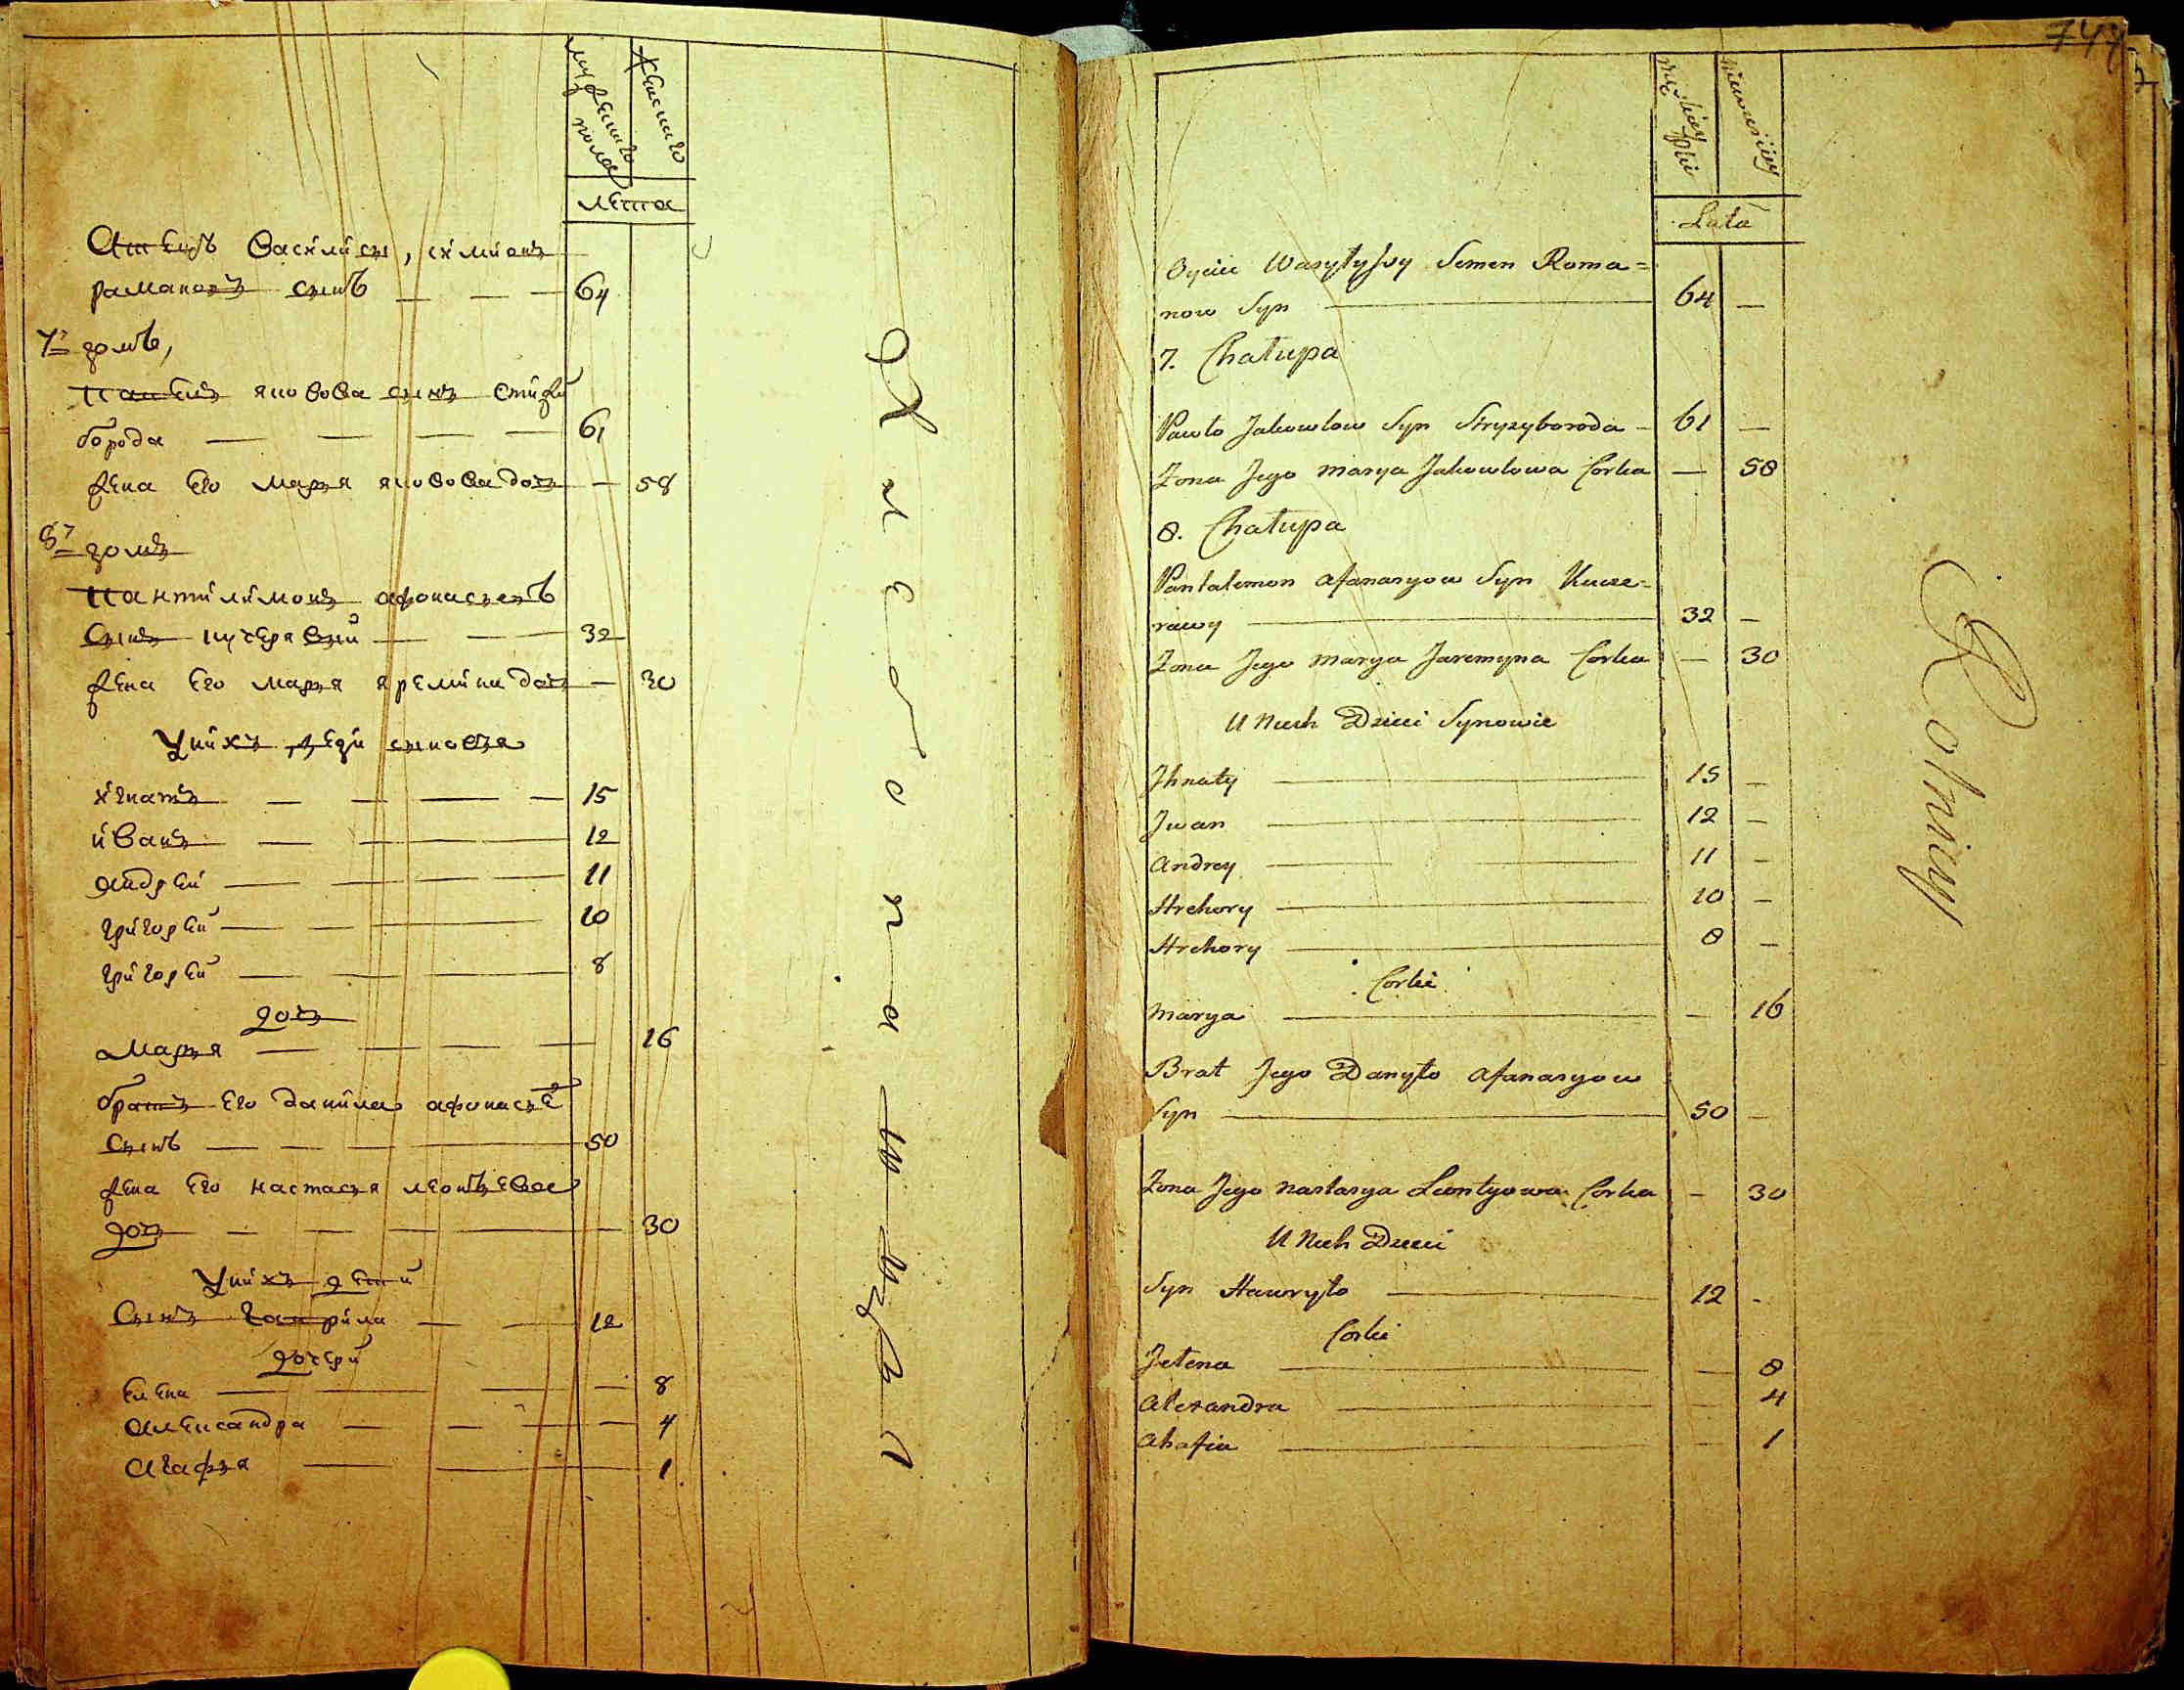 мужеска пола
женска
лета
Атецъ василисы, симионъ
рамановъ сынъ 64
7й домъ,
Павелъ яковова сынъ стиже
борода 61
жена его марья яковова дочь 58
8й домъ
Пантилимонъ афонасьевъ
сынъ кучерявый 32
жена его марья яремина дочь 30
У них дети сыновья
игнатъ 15
иванъ 12
андрей 11
григорей 10
григорей 8
дочь
марья 16
братъ его данила афонасьев
сынъ 50
жена его настасья леонтьева
дочь 30
У нихъ дети
Сынъ гаврила 12
дочери
елена 8
александра 4
агафья 1
747
męskiey płci
niewieściey
Lata
Oyciec Wasylysy Semen Roma=
now Syn 64 —
7. Chałupa
Pawło Jakowlow Syn Stryzyboroda 61 —
Zona Jego Marya Jakowlowa Corka — 58
8. Chałupa
Pantalemon Afanasyow Syn Kucze=
rawy 32 —
Zona Jego Marya Jaremyna Corka — 30
U Nich Dzieci Synowie
Jhnaty 15 —
Jwan 12 —
Andrey 11 —
Hrehory 10 —
Hrehory 8 —
Corki
Marya — 16
Brat Jego Danyło Afanasyow
Syn 50 —
Zona Jego Nastasya Leontyowa Corka — 30
U Nich Dzieci
Syn Hawryło 12 -
Corki
Jełena — 8
Alexandra — 4
Ahafia — 1
Rolniey